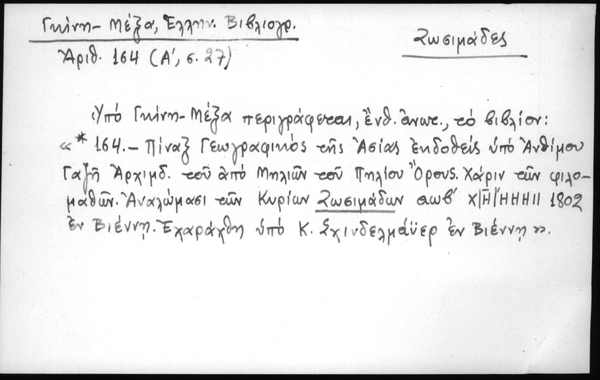 Γκίνη - Μέξα, Ἑλλην. Βιβλιογρ.
Ἀριθ. 164 (Α', σ. 27)
Ζωσιμάδες
Ὑπό Γκίνη - Μέξα περιγράφεται, ἔνθ. ἀνωτ., τό βιβλίον:
« * 164. - Πίναξ Γεωγραφικός τῆς Ἀσίας ἐκδοθείς ὑπό Ἀνθίμου
Γαζῆ Ἀρχιμδ. τοῦ ἀπό Μηλιῶν τοῦ Πηλίου Ὄρους. Χάριν τῶν φιλο-
μαθῶν. Ἀναλώμασι τῶν Κυρίων Ζωσιμάδων αωβ' 1802
ἐν Βιέννῃ. Ἐχαράχθη ὑπό Κ. Σχινδελμάϋερ ἐν Βιέννῃ ».